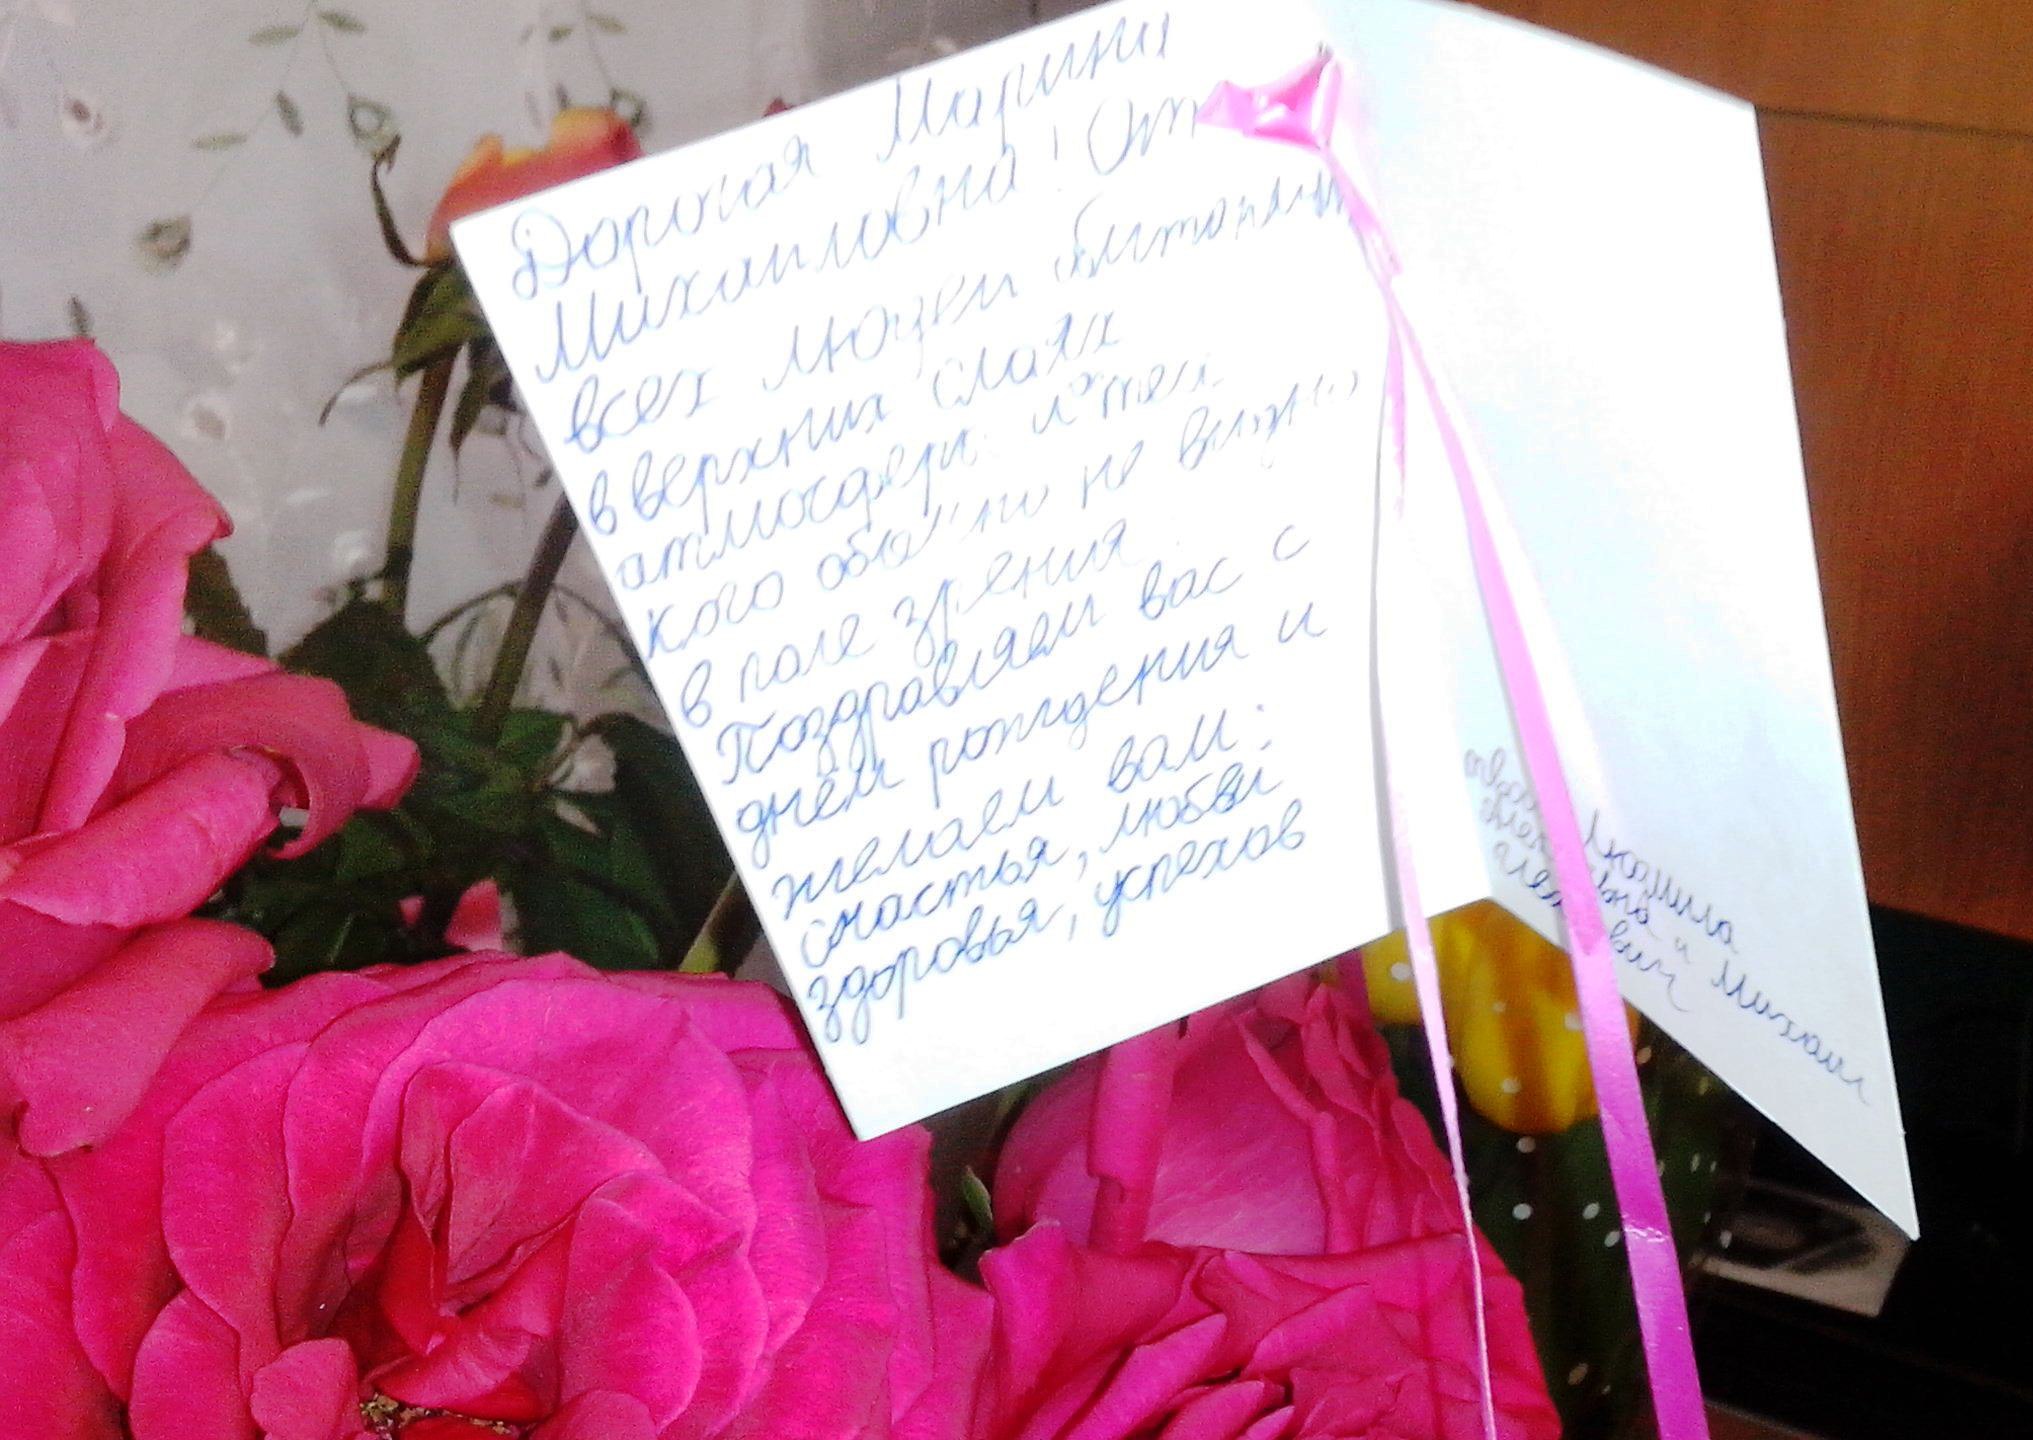 Дорогая Марина
Михайловна! От
всех людей обитающих
в верхних слоях
атмосферы и тех
кого обычно не видно
в поле зрения.
Поздравляем вас с
днём рождения и
желаем вам:
счастья, любви
здоровья, успехов
Людмила
и Михаил